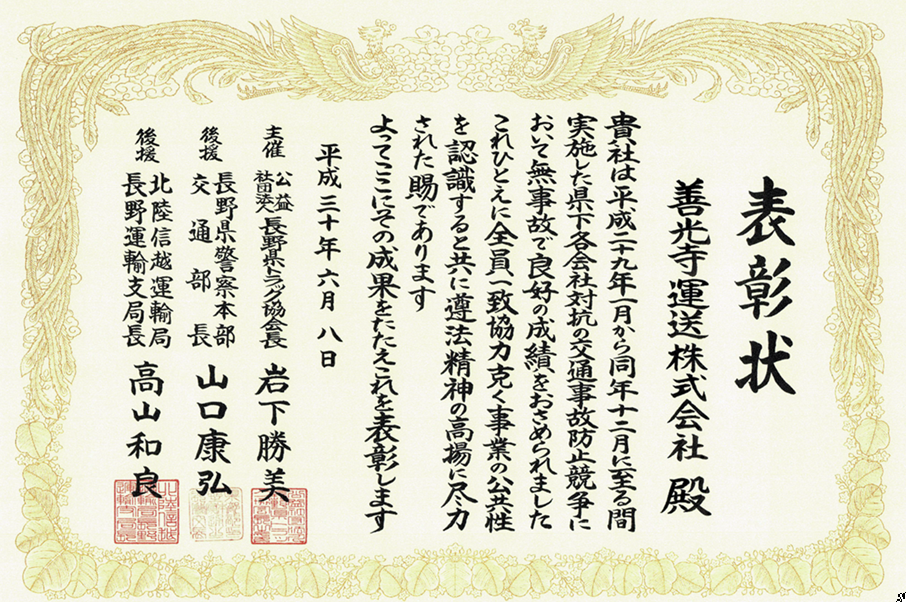 表彰状
善光寺運送株式会社 殿
貴社は平成二十九年一月から同年十二月に至る間
実施した県下各会社対抗の交通事故防止競争に
おいて無事故で良好の成績をおさめられました
これひとえに全員一致協力克く事業の公共性
を認識すると共に遵法精神の高揚に尽力
された賜であります
よってここにその成果をたたえこれを表彰します
平成三十年六月八日
主催 公益社団法人長野県トラック協会長 岩下勝美
後援 長野県警察本部交通部長 山口康弘
後援 北陸信越運輸局長野運輸支局長 高山和良